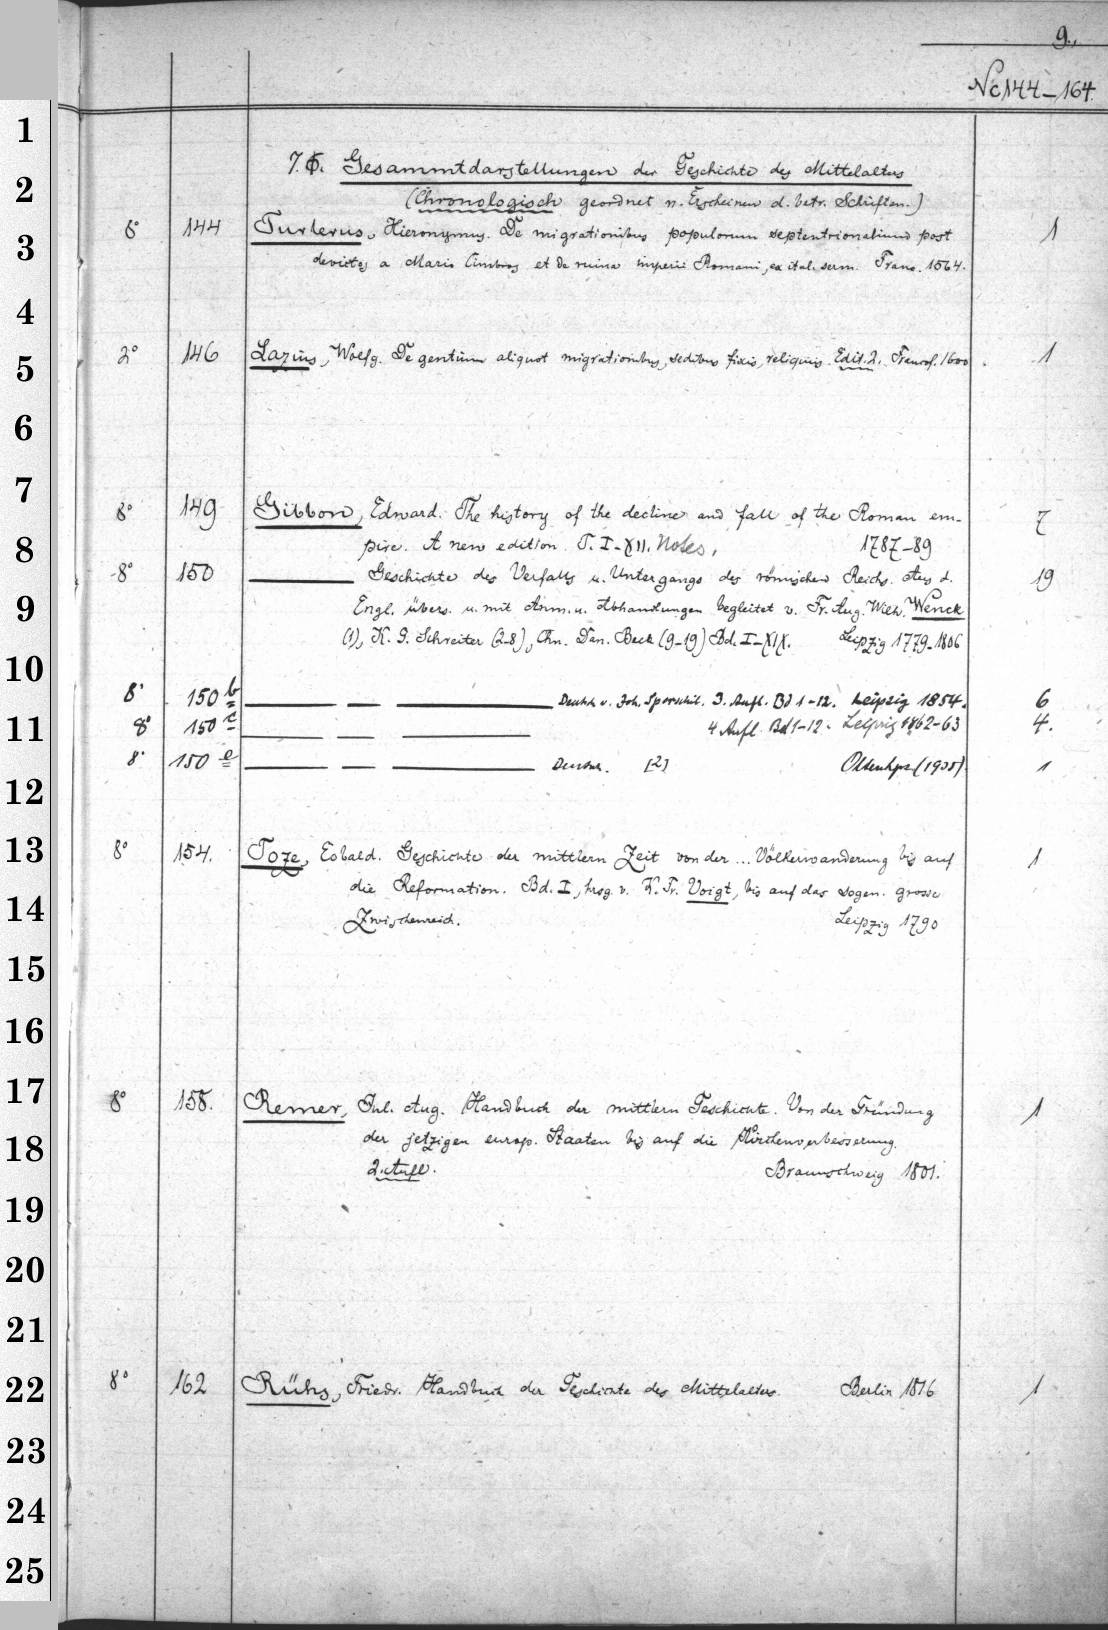 9.
Nc 144-164.
1
7. G. Gesammtdarstellungen der Geschichte des Mittelalters
2
(Chronologisch geordnet n. Erscheinen d. betr. Schriften.)
3
8° 144 Turlerus, Hieronymus. De migrationibus populorum septentrionalium post 1
devictos a Mario Cimbros et de ruina imperii Romani, ex ital. serm. Franc. 1564.
4
5
2° 146 Lazius, Wolfg. De gentium aliquot migrationibus, sedibus fixis, reliquiis. Edit. 2. Francof. 1600 1
6
7
8° 149 Gibbon, Edward. The history of the decline and fall of the Roman em- 7
8
pire. A new edition. T. I-XII. Notes. 1787-89
8° 150 ——— Geschichte des Verfalls u. Untergangs des römischen Reichs. Aus d. 19
9
Engl. übers. u. mit Anm. u. Abhandlungen begleitet v. Fr. Aug. Wilh. Wenck
(1), K. G. Schreiter (2-8), Chn. Dan. Beck (9-19) Bd. I-XIX. Leipzig 1779-1806
10
8° 150 b ——— — ——— Deutsch v. Joh. Sporschil. 3. Aufl. Bd 1-12. Leipzig 1854. 6
11
8° 150 c ——— — ——— 4 Aufl. Bd 1-12. Leipzig 1862-63 4.
8° 150 e ——— — ——— Deutsch. [2] (1908) 1
12
13
8° 154. Toze, Eobald. Geschichte der mittlern Zeit von der ... Völkerwanderung bis auf 1
die Reformation. Bd. I, hrsg. v. K. Fr. Voigt, bis auf das sogen. grosse
14
Zwischenreich. Leipzig 1790
15
16
17
8° 158. Remer, Jul. Aug. Handbuch der mittlern Geschichte. Von der Gründung 1
18
der jetzigen europ. Staaten bis auf die Kirchenverbesserung.
2. Aufl. Braunschweig 1801.
19
20
21
22
8° 162 Rühs, Friedr. Handbuch der Geschichte des Mittelalters. Berlin 1816 1
23
24
25